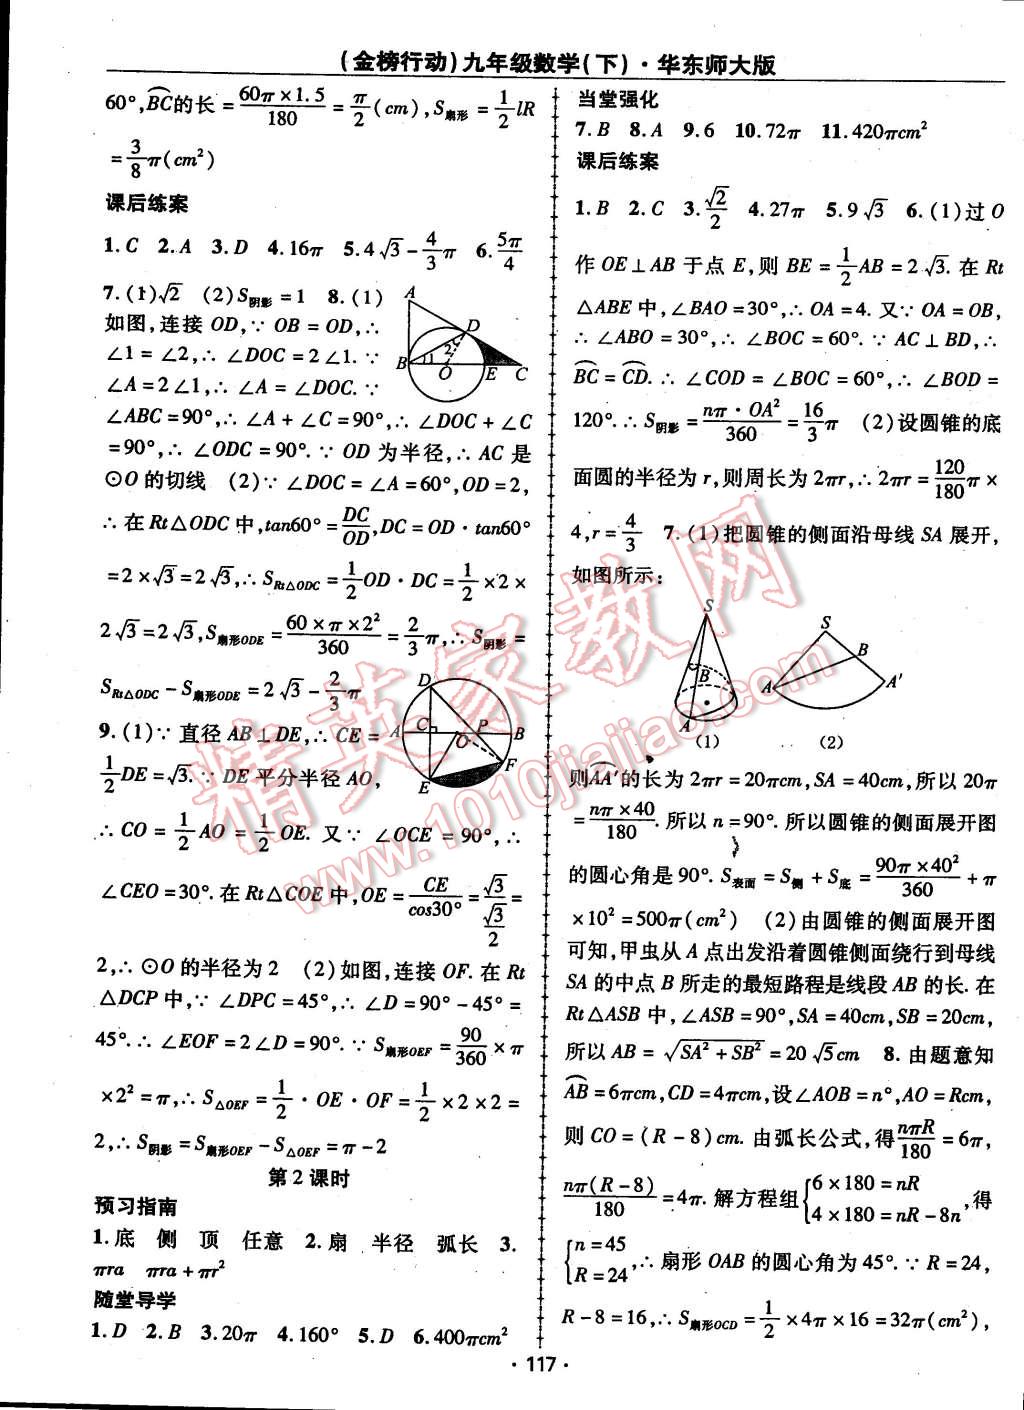 (金榜行动)九年级数学(下)·华东师大版
60°,BC的长=60π×1.5/180=π/2(cm),S扇形=1/2lR
=3/8π(cm²)
课后练案
1.C 2.A 3.D 4.16π 5.4√3-4/3π 6.5π/4
7.(1)√2 (2)S阴影=1 8.(1)
如图,连接OD,∵OB=OD,∴
∠1=∠2,∴∠DOC=2∠1.∵
∠A=2∠1,∴∠A=∠DOC.∵
∠ABC=90°,∴∠A+∠C=90°,∴∠DOC+∠C
=90°,∴∠ODC=90°.∵OD为半径,∴AC是
⊙O的切线 (2)∵∠DOC=∠A=60°,OD=2,
∴在Rt△ODC中,tan60°=DC/OD,DC=OD·tan60°
=2×√3=2√3,∴S Rt△ODC=1/2OD·DC=1/2×2×
2√3=2√3,S扇形ODE=60×π×2²/360=2/3π,∴S阴影=
S Rt△ODC-S扇形ODE=2√3-2/3π
9.(1)∵直径AB⊥DE,∴CE=
1/2DE=√3.∵DE平分半径AO,
∴CO=1/2AO=1/2OE.又∵∠OCE=90°,∴
∠CEO=30°.在Rt△COE中,OE=CE/cos30°=√3/(√3/2)=
2,∴⊙O的半径为2 (2)如图,连接OF.在Rt
△DCP中,∵∠DPC=45°,∴∠D=90°-45°=
45°.∴∠EOF=2∠D=90°.∵S扇形OEF=90/360×π
×2²=π,∴S△OEF=1/2·OE·OF=1/2×2×2=
2,∴S阴影=S扇形OEF-S△OEF=π-2
第2课时
预习指南
1.底 侧 顶 任意 2.扇 半径 弧长 3.
πra πra+πr²
随堂导学
1.D 2.B 3.20π 4.160° 5.D 6.400πcm²
A
D
B
1
2
O
E
C
D
A
C
O
P
B
E
F
当堂强化
7.B 8.A 9.6 10.72π 11.420πcm²
课后练案
1.B 2.C 3.√2/2 4.27π 5.9√3 6.(1)过O
作OE⊥AB于点E,则BE=1/2AB=2√3.在Rt
△ABE中,∠BAO=30°,∴OA=4.又∵OA=OB,
∴∠ABO=30°,∴∠BOC=60°.∵AC⊥BD,∴
BC=CD.∴∠COD=∠BOC=60°,∴∠BOD=
120°.∴S阴影=nπ·OA²/360=16/3π (2)设圆锥的底
面圆的半径为r,则周长为2πr,∴2πr=120/180π×
4,r=4/3 7.(1)把圆锥的侧面沿母线SA展开,
如图所示:
S
B
A
(1)
S
B
A
A′
(2)
则AA′的长为2πr=20πcm,SA=40cm,所以20π
=nπ×40/180.所以n=90°.所以圆锥的侧面展开图
的圆心角是90°.S表面=S侧+S底=90π×40²/360+π
×10²=500π(cm²) (2)由圆锥的侧面展开图
可知,甲虫从A点出发沿着圆锥侧面绕行到母线
SA的中点B所走的最短路程是线段AB的长.在
Rt△ASB中,∠ASB=90°,SA=40cm,SB=20cm,
所以AB=√SA²+SB²=20√5cm 8.由题意知
AB=6πcm,CD=4πcm,设∠AOB=n°,AO=Rcm,
则CO=(R-8)cm.由弧长公式,得nπR/180=6π,
nπ(R-8)/180=4π.解方程组{6×180=nR 4×180=nR-8n,得
{n=45 R=24,∴扇形OAB的圆心角为45°.∵R=24,
R-8=16,∴S扇形OCD=1/2×4π×16=32π(cm²),
·117·
精英家教网
www.1010jiajiao.com